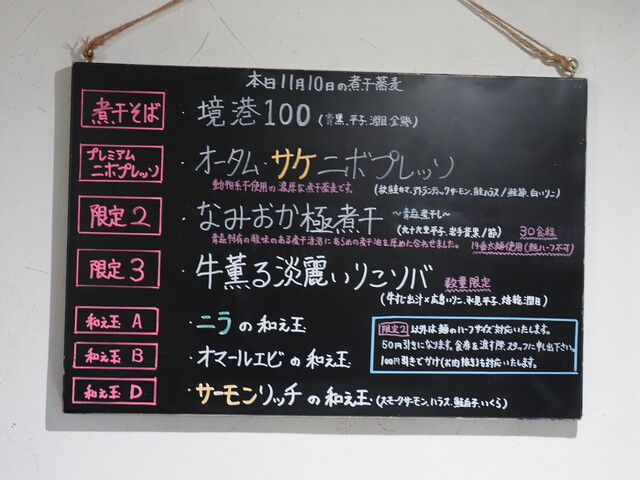 本日11月10日の煮干蕎麦
煮干そば ・境港100 (青黒、平子、潤目、金鯵)
プレミアム
ニボプレッソ ・オータム・サケニボプレッソ
動物系不使用の濃厚な煮干蕎麦です。 (秋鮭カマ、アトランティックサーモン、鮭ハラス/鮭節、白いりこ)
限定2 ・なみおか極煮干 ～青森煮干し～
(九十九里平子、岩手背黒/節) 30食程
青森特有の酸味のある煮干清湯に あらめの煮干油を厚めに合わせました。
限定3 ・牛薫る淡麗いりこソバ 数量限定
(牛だし出汁×広島いりこ、 平子、焼乾、潤目)
和え玉 A ・ニラの和え玉
和え玉 B ・オマールエビの和え玉
和え玉 D ・サーモンリッチの和え玉 (スモークサーモン、ハラス、鮭白子、いくら)
限定2 以外は麺のハーフサイズ対応いたします。
50円引きになります。食券を渡す際スタッフに申し出下さい。
100円引きでかけ(お肉抜き)も対応いたします。